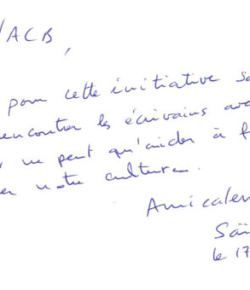 /ACB,
pour cette initiative
rencontre les écrivains
ne peut qu'aider à
notre culture.
Amicalem
le 17